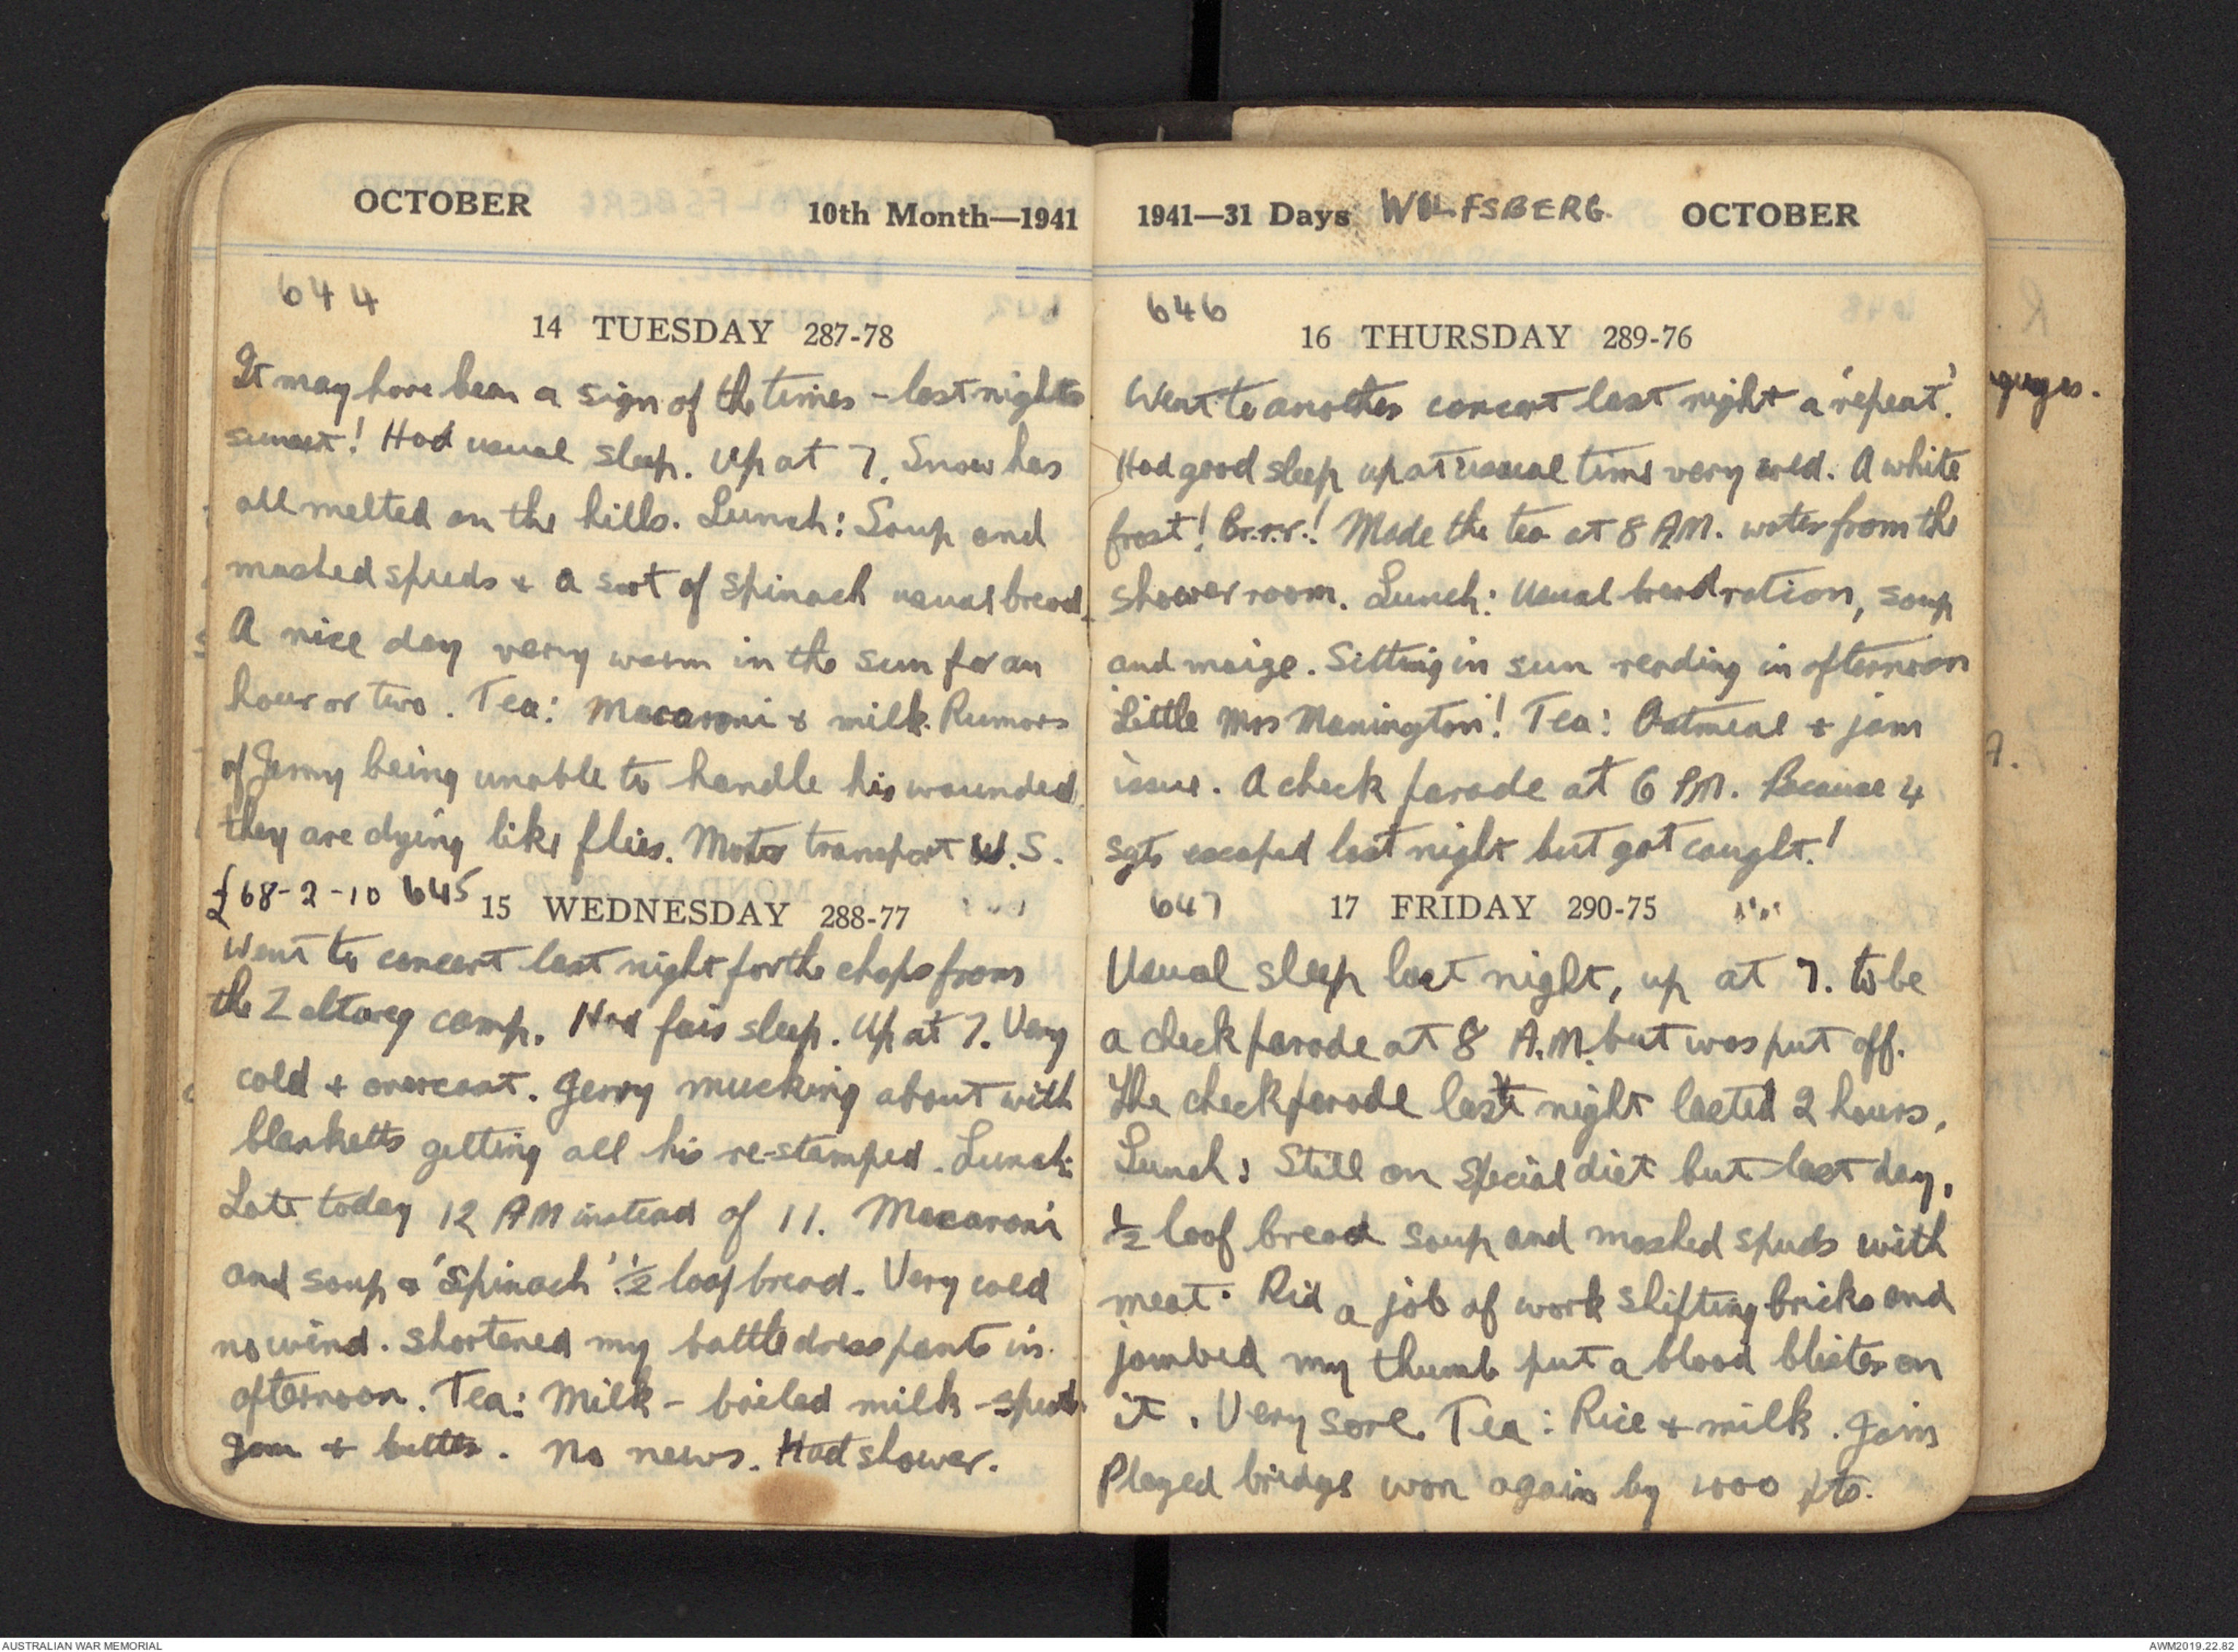 OCTOBER
10th Month—1941
644
14 TUESDAY 287-78
It may have been a sign of the times - last nights
sunset! Had usual sleep. Up at 7. Snow has
all melted on the hills. Lunch: Soup and
mashed spuds + a sort of spinach usual bread.
A nice day very warm in the sun for an
hour or two. Tea: Macaroni & milk. Rumors
of Jerry being unable to handle his wounded
they are dying like flies. Motor transport W.S.
£68-2-10 645
15 WEDNESDAY 288-77
Went to concert last night for the chaps from
the Z altareg camp. Had fair sleep. Up at 7. Very
cold + overcoat. Jerry mucking about with
blanketts getting all his re-stamped. Lunch:
Late today 12 AM instead of 11. Macaroni
and soup & 'Spinach' ½ loaf bread. Very cold
no wind. Shortened my battledress pants in
afternoon. Tea: Milk - boiled milk - spuds
Jam + butter. No news. Had shower.
1941—31 Days WOLFSBERG. OCTOBER
646
16 THURSDAY 289-76
Went to another concert last night a 'repeat'.
Had good sleep up at usual time very cold. A white
frost! Br.r.r.! Made the tea at 8 A.M. water from the
shower room. Lunch: Usual bread ration, soup
and maize. Sitting in sun reading in afternoon
'Little Mrs Manington'! Tea: Oatmeal + jam
issue. A check parade at 6 P.M. Because 4
sgts escaped last night but got caught!
647
17 FRIDAY 290-75
Usual sleep last night, up at 7. to be
a check parade at 8 A.M. but was put off.
The check parade last night lasted 2 hours,
Lunch: Still on special diet but last day,
½ loaf bread soup and mashed spuds with
meat. Did a job of work shifting bricks and
jambed my thumb put a blood blister on
it. Very sore. Tea: Rice + milk. Jam
Played bridge won again by 1000 pts.
AUSTRALIAN WAR MEMORIAL
AWM2019.22.82